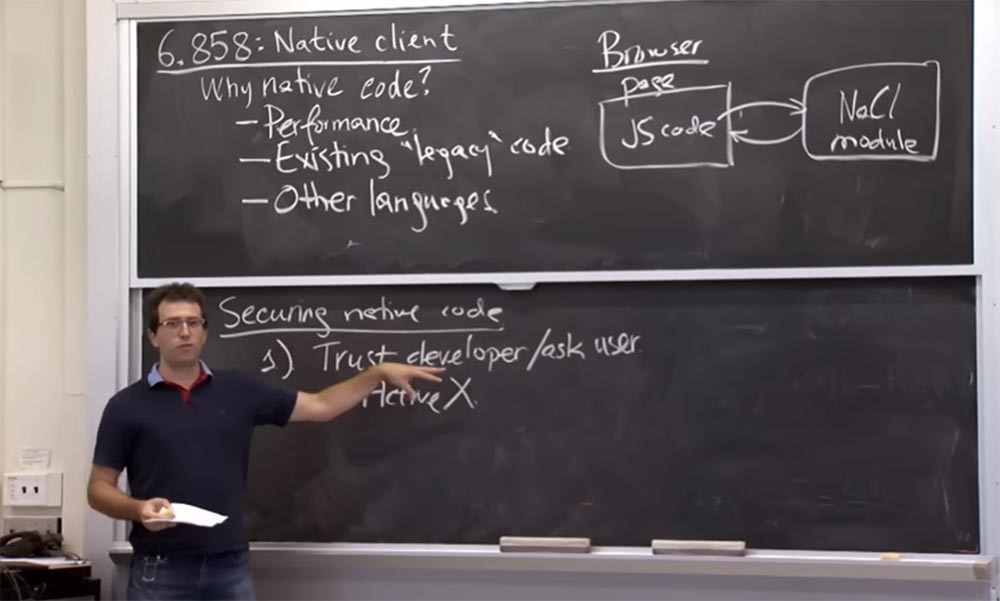 6.858: Native client
Why native code?
– Performance
– Existing "legacy" code
– Other languages
Browser
page
JS code
NaCl
module
Securing native code
1) Trust developer/ask user
ActiveX.